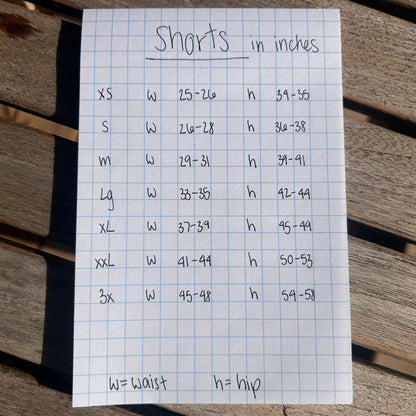 Shorts in inches
XS W 25-26 h 34-35
S W 26-28 h 36-38
m W 29-31 h 39-41
Lg W 33-35 h 42-44
XL W 37-39 h 45-49
XXL W 41-44 h 50-53
3X W 45-48 h 54-58
W=Waist h=hip